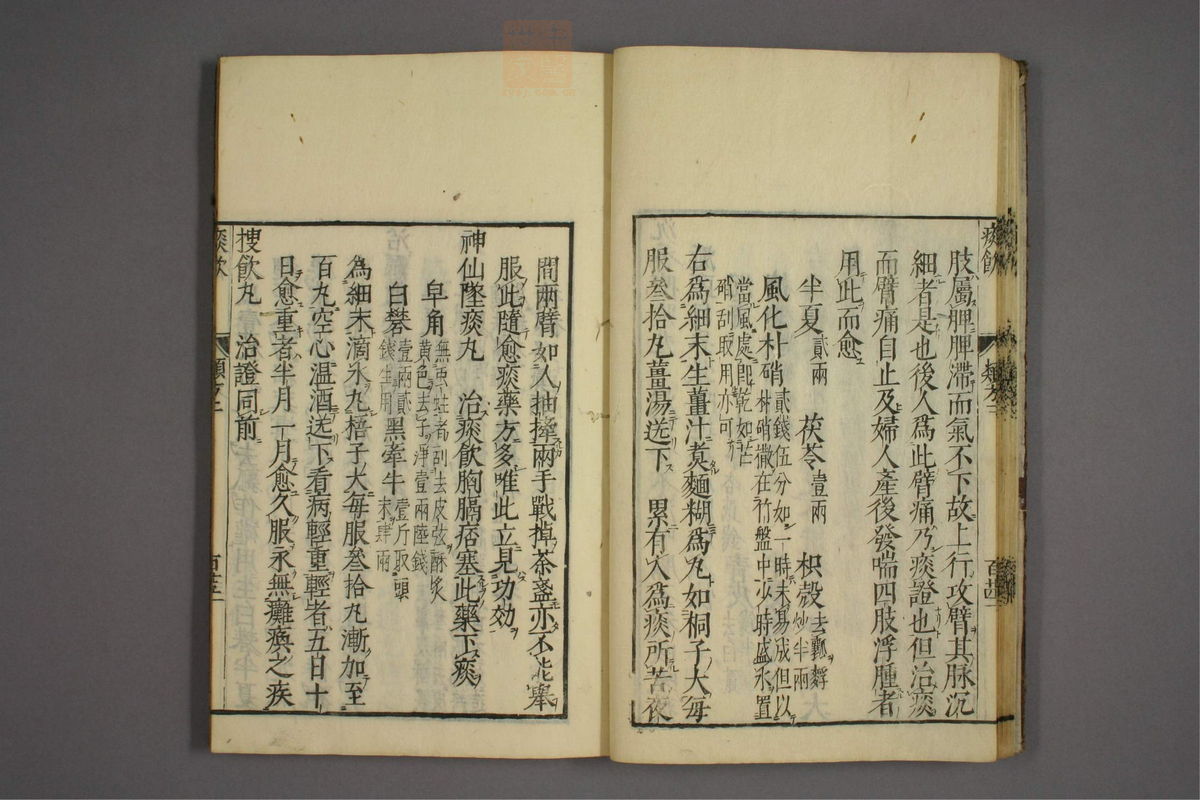 肢屬脾脾滯而氣不下故上行攻臂其脉沉
細者是也後人爲此臂痛乃痰證也但治痰
而臂痛自止及婦人產後發喘四肢浮腫者
用此而愈
半夏貳兩 茯苓壹兩 枳殼去瓤麩炒半兩
風化朴硝貳錢伍分如一時未易成但以朴硝撒在竹盤中少時盛水置
當風處卽乾如芒硝刮取用亦可
右爲細末生薑汁煑麵糊爲丸如桐子大每
服叁拾丸薑湯送下 累有人爲痰所苦夜
痰飲
間兩臂如人抽掣兩手戰掉茶盞亦不能舉
服此隨愈痰藥方多唯此立見功効
神仙墜痰丸 治痰飲胸膈痞塞此藥下痰
皁角無蟲蛀者刮去皮弦酥炙黃色去子淨壹兩陸錢
白礬壹兩貳錢生用 黑牽牛壹斤取頭末肆兩
爲細末滴水丸梧子大每服叁拾丸漸加至
百丸空心温酒送下看病輕重輕者五日十
日愈重者半月一月愈久服永無癱瘓之疾
搜飲丸 治證同前
痰飲